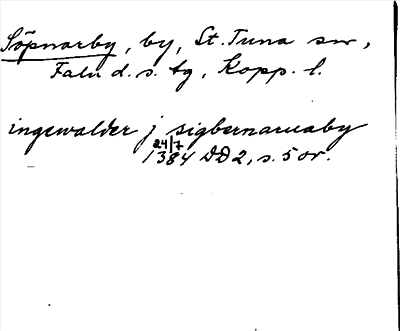 Söpnarby, by, St. Tuna sn,
Falu d. s. tg, Kopp. l.
ingewalder j sigbernarnaby
24/7
1384 DD 2, s. 5 or.